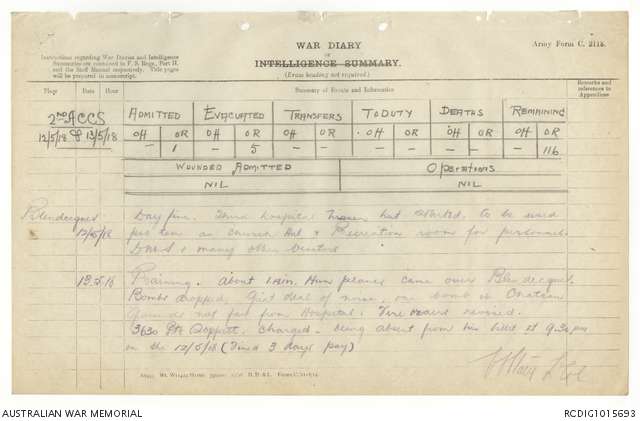 WAR DIARY
or
INTELLIGENCE SUMMARY.
(Erase heading not required.)
Army Form C. 2118.
Instructions regarding War Diaries and Intelligence
Summaries are contained in F. S. Regs., Part II.
and the Staff Manual respectively. Title pages
will be prepared in manuscript.
Place Date Hour Summary of Events and Information Remarks and
references to
Appendices
2ND ACCS
12/5/18 & 13/5/18
ADMITTED EVACUATED TRANSFERS TO DUTY DEATHS REMAINING
OR OR OR OR OR OR
– 1 – 5 – – – – – – – 116
WOUNDED ADMITTED OPERATIONS
NIL NIL
Blendecques
12/5/18
Day fine. hospital hut started, to be used
as Church Hut & Recreation room for personnel.
& many other
13.5.18
Raining. About 1 a.m. Hun planes came over Blendecques.
Bombs dropped, great deal of noise, one bomb in Chateau
Grounds not far from Hospital.
3630 Pte charged. being absent from his billet at 9.30 pm
on the 12/5/18 (Fined 3 days pay)
AUSTRALIAN WAR MEMORIAL
RCDIG1015693